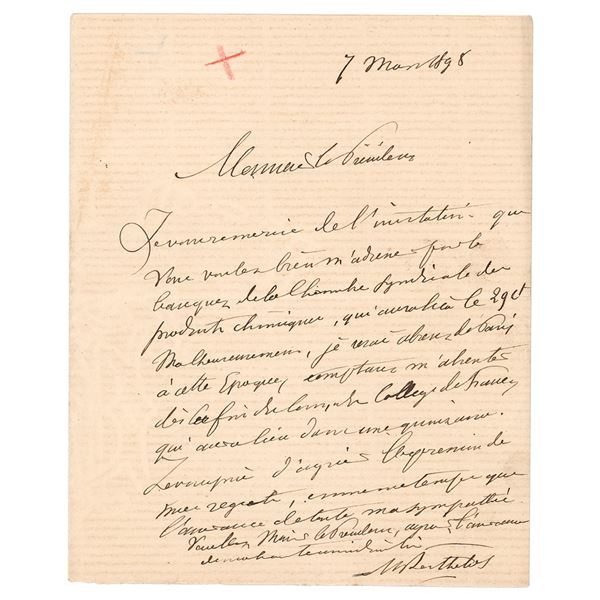 7 Mars 1898
Monsieur le Président
Je vous remercie de l'invitation que
vous voulez bien m'adresser pour le
banquet de la Chambre Syndicale des
produits chimiques, qui aura lieu le 29 ct
Malheureusement, je serai absent de Paris
à cette Epoque, comptant m'absenter
dès la fin des Cours du College de France,
qui aura lieu dans une quinzaine.
Je vous prie d'agréer l'expression de
mes regrets, en même temps que
l'assurance de toute ma sympathie.
Veuillez, Monsieur le Président, agréer l'assurance
de ma haute considération
M Berthelot